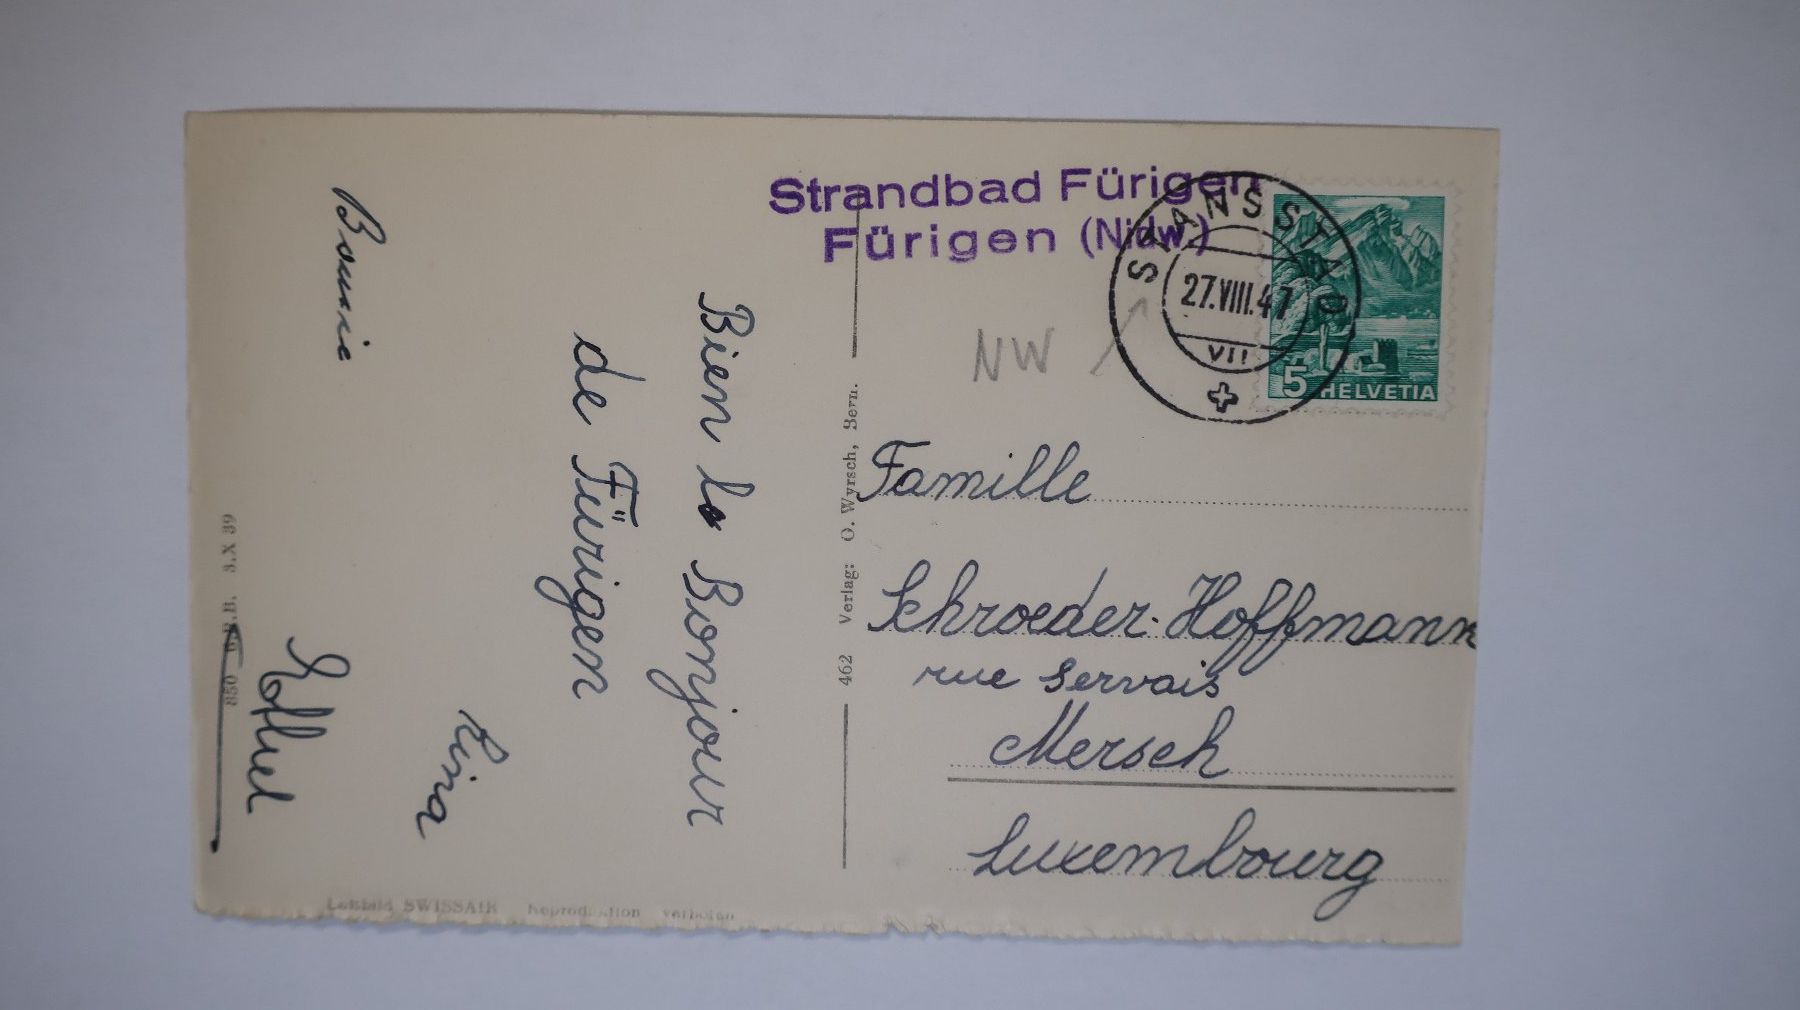 Strandbad Fürigen
Fürigen (Nidw.)
STANSSTAD
27.VIII.47
VII
5 HELVETIA
NW
Bien le Bonjour
de Fürigen
462 Verlag: O. Wyrsch, Bern.
Famille
Schroeder-Hoffmann
rue Servais
Mersch
Luxembourg
850 3.X 39
SWISSAIR Reproduktion verboten